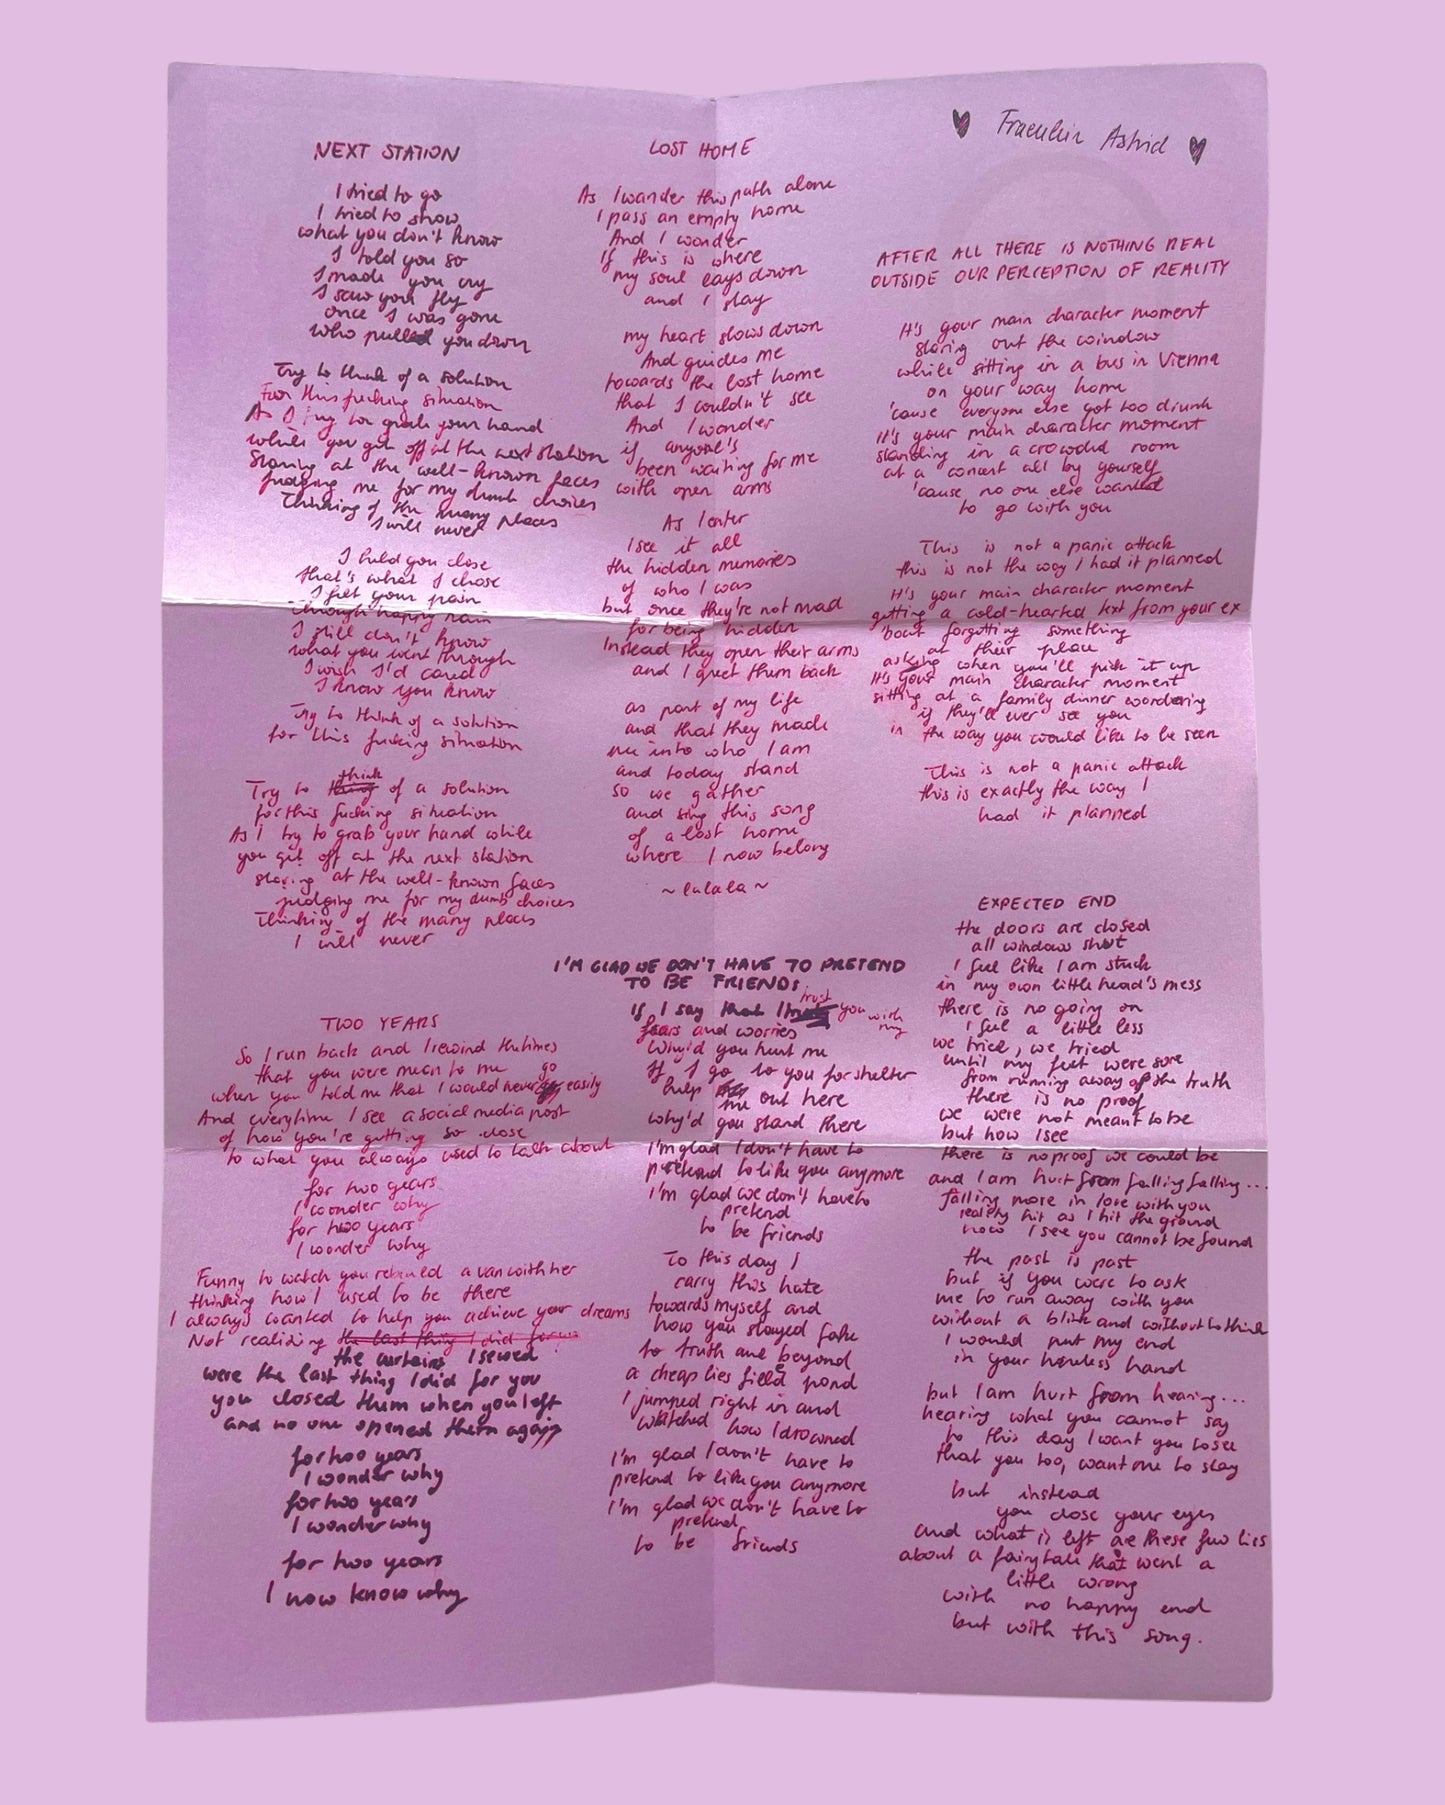 NEXT STATION
I tried to go
I tried to show
what you don't know
I told you so
I made you cry
I saw you fly
once I was gone
who pulled you down
Try to think of a solution
For this fucking situation
As I try to grab your hand
while you get off at the next station
Staring at the well-known faces
judging me for my dumb choices
Thinking of the many places
I will never
I held you close
that's what I chose
I felt your pain
through happy rain
I still don't know
what you went through
I wish I'd cared
I know you know
Try to think of a solution
for this fucking situation
think
Try to thing of a solution
for this fucking situation
As I try to grab your hand while
you get off at the next station
staring at the well-known faces
judging me for my dumb choices
Thinking of the many places
I will never
TWO YEARS
So I run back and I rewind the times
that you were mean to me
when you told me that I would never go easily
And everytime I see a social media post
of how you're getting so close
to what you always used to talk about
for two years
I wonder why
for two years
I wonder why
Funny to watch you rebuild a van with her
thinking how I used to be there
I always wanted to help you achieve your dreams
Not realizing the last thing I did for
the curtains I sewed
were the last thing I did for you
you closed them when you left
and no one opened them again
for two years
I wonder why
for two years
I wonder why
for two years
I now know why
LOST HOME
As I wander this path alone
I pass an empty home
And I wonder
If this is where
my soul lays down
and I stay
my heart slows down
And guides me
towards the lost home
that I couldn't see
And I wonder
if anyone's
been waiting for me
with open arms
As I enter
I see it all
the hidden memories
of who I was
but once they're not mad
for being hidden
Instead they open their arms
and I greet them back
as part of my life
and that they made
me into who I am
and today stand
so we gather
and sing this song
of a lost home
where I now belong
~ lalala ~
I'M GLAD WE DON'T HAVE TO PRETEND
TO BE FRIENDS
If I say that I trust you with my
fears and worries
Why'd you hurt me
If I go to you for shelter
help me out here
why'd you stand there
I'm glad I don't have to
pretend to like you anymore
I'm glad we don't have to
pretend
to be friends
To this day I
carry this hate
towards myself and
how you stayed fake
to truth and beyond
a cheap lies filled pond
I jumped right in and
watched how I drowned
I'm glad I don't have to
pretend to like you anymore
I'm glad we don't have to
pretend
to be friends
♥ Fraeulein Astrid ♥
AFTER ALL THERE IS NOTHING REAL
OUTSIDE OUR PERCEPTION OF REALITY
It's your main character moment
staring out the window
while sitting in a bus in Vienna
on your way home
'cause everyone else got too drunk
It's your main character moment
standing in a crowded room
at a concert all by yourself
'cause no one else wanted
to go with you
This is not a panic attack
this is not the way I had it planned
It's your main character moment
getting a cold-hearted text from your ex
'bout forgetting something
at their place
asking when you'll pick it up
It's your main character moment
sitting at a family dinner wondering
if they'll ever see you
in the way you would like to be seen
This is not a panic attack
this is exactly the way I
had it planned
EXPECTED END
the doors are closed
all windows shut
I feel like I am stuck
in my own little head's mess
there is no going on
I feel a little less
we tried, we tried
until my feet were sore
from running away of the truth
there is no proof
we were not meant to be
but how I see
there is no proof we could be
and I am hurt from falling falling...
falling more in love with you
reality hit as I hit the ground
now I see you cannot be found
the past is past
but if you were to ask
me to run away with you
without a blink and without to think
I would put my end
in your hand
but I am hurt from hearing...
hearing what you cannot say
to this day I want you to see
that you too, want me to stay
but instead
you close your eyes
and what is left are these few lies
about a fairytale that went a
little wrong
with no happy end
but with this song.